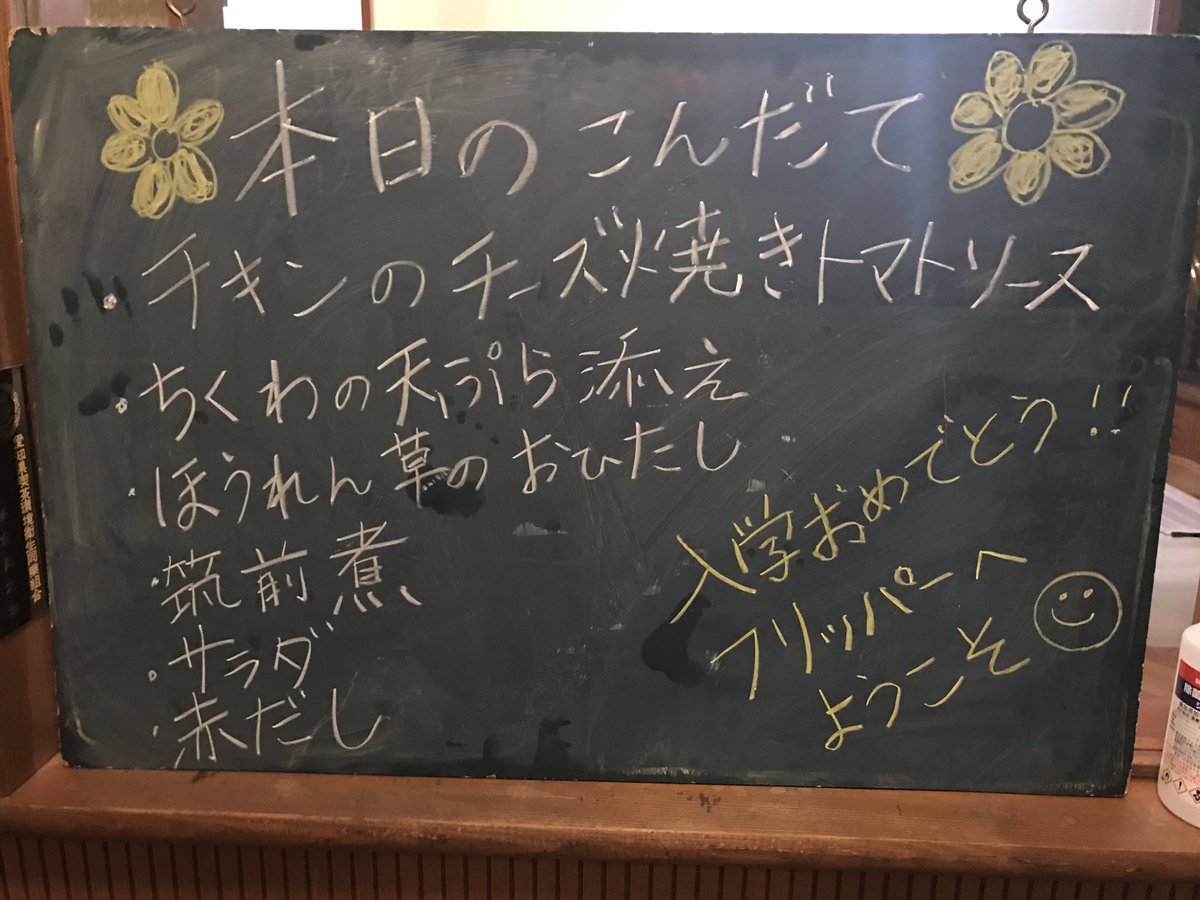 本日のこんだて
・チキンのチーズ焼きトマトソース
・ちくわの天ぷら添え
・ほうれん草のおひたし
・筑前煮
・サラダ
・赤だし
入学おめでとう!!
フリッパーへ
ようこそ